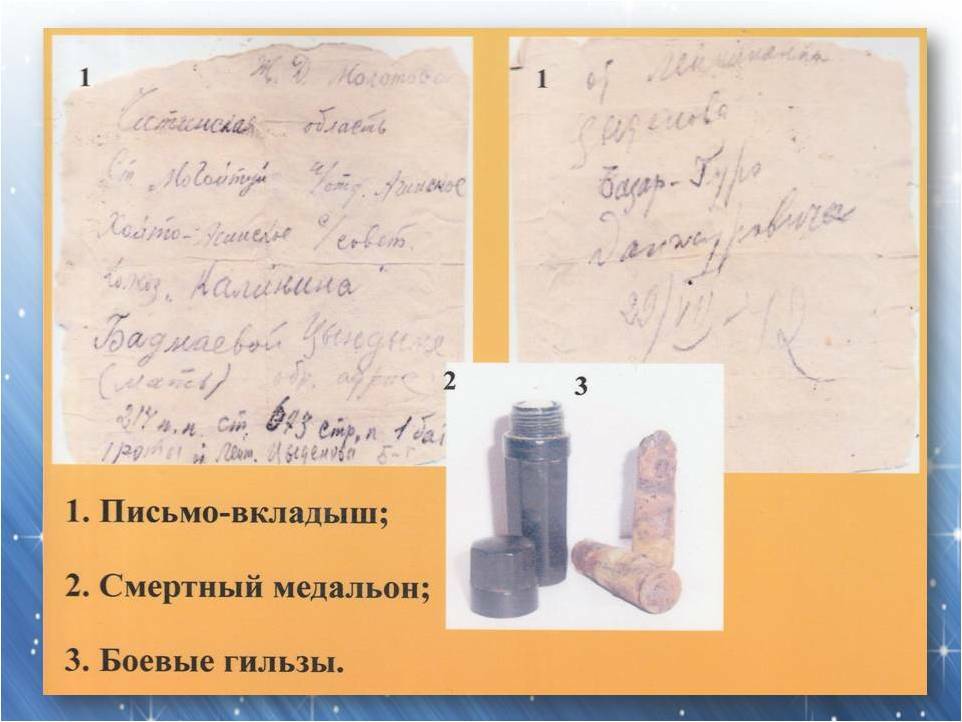 1
Ж. Д. Молотова
Читинская область
Ст. Могойтуй отд. Агинское
Хойто- с/совет.
Колхоз "Калинина"
Бадмаевой Цындыме
(мать) обр. адрес
217 п.п. ст. 673 стр.п 1 бат
роты Лейт. Цыденова Б-Г
1
от Лейтенанта
Цыденова
Базар-Гуро
29/VIII-42
2
3
1. Письмо-вкладыш;
2. Смертный медальон;
3. Боевые гильзы.